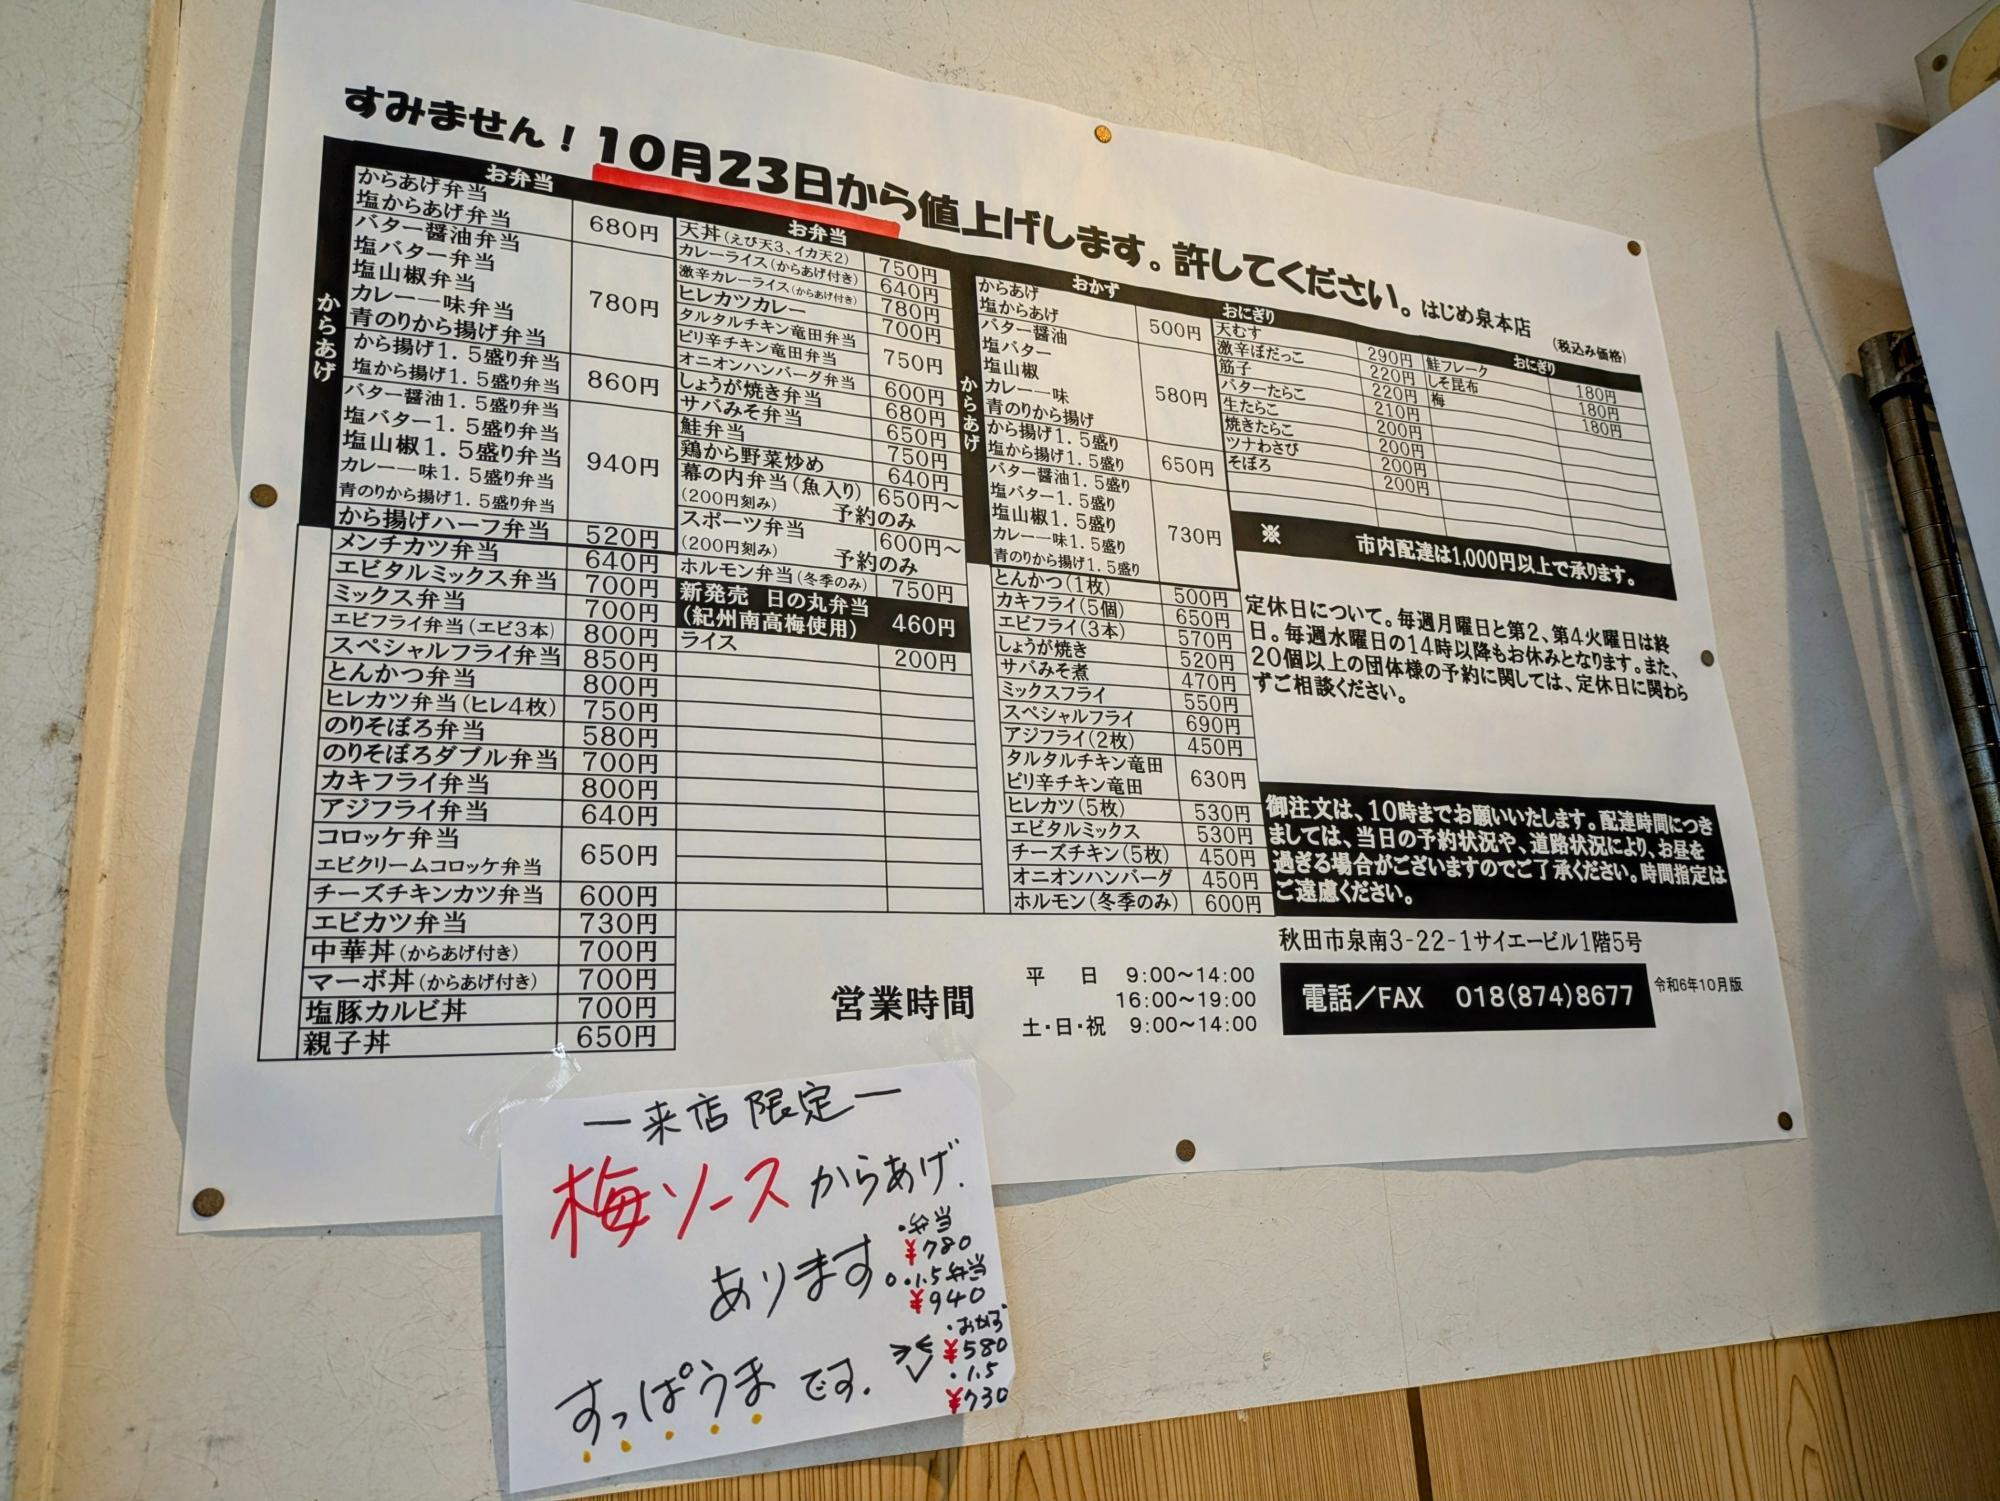 すみません！10月23日から値上げします。許してください。はじめ泉本店
(税込み価格)
お弁当
からあげ
からあげ弁当
塩からあげ弁当
680円
バター醤油弁当
塩バター弁当
塩山椒弁当
カレー一味弁当
青のりから揚げ弁当
780円
から揚げ1.5盛り弁当
塩から揚げ1.5盛り弁当
860円
バター醤油1.5盛り弁当
塩バター1.5盛り弁当
塩山椒1.5盛り弁当
カレー一味1.5盛り弁当
青のりから揚げ1.5盛り弁当
940円
から揚げハーフ弁当 520円
メンチカツ弁当 640円
エビタルミックス弁当 700円
ミックス弁当 700円
エビフライ弁当(エビ3本) 800円
スペシャルフライ弁当 850円
とんかつ弁当 800円
ヒレカツ弁当(ヒレ4枚) 750円
のりそぼろ弁当 580円
のりそぼろダブル弁当 700円
カキフライ弁当 800円
アジフライ弁当 640円
コロッケ弁当
エビクリームコロッケ弁当
650円
チーズチキンカツ弁当 600円
エビカツ弁当 730円
中華丼(からあげ付き) 700円
マーボ丼(からあげ付き) 700円
塩豚カルビ丼 700円
親子丼 650円
お弁当
天丼(えび天3、イカ天2) 750円
カレーライス(からあげ付き) 640円
激辛カレーライス(からあげ付き) 780円
ヒレカツカレー 700円
タルタルチキン竜田弁当
ピリ辛チキン竜田弁当
750円
オニオンハンバーグ弁当 600円
しょうが焼き弁当 680円
サバみそ弁当 650円
鮭弁当 750円
鶏から野菜炒め 640円
幕の内弁当(魚入り) 650円～
(200円刻み) 予約のみ
スポーツ弁当 600円～
(200円刻み) 予約のみ
ホルモン弁当(冬季のみ) 750円
新発売 日の丸弁当
(紀州南高梅使用) 460円
ライス 200円
おかず
からあげ
からあげ
塩からあげ
500円
バター醤油
塩バター
塩山椒
カレー一味
青のりから揚げ
580円
から揚げ1.5盛り
塩から揚げ1.5盛り
650円
バター醤油1.5盛り
塩バター1.5盛り
塩山椒1.5盛り
カレー一味1.5盛り
青のりから揚げ1.5盛り
730円
とんかつ(1枚) 500円
カキフライ(5個) 650円
エビフライ(3本) 570円
しょうが焼き 520円
サバみそ煮 470円
ミックスフライ 550円
スペシャルフライ 690円
アジフライ(2枚) 450円
タルタルチキン竜田
ピリ辛チキン竜田
630円
ヒレカツ(5枚) 530円
エビタルミックス 530円
チーズチキン(5枚) 450円
オニオンハンバーグ 450円
ホルモン(冬季のみ) 600円
おにぎり
天むす 290円
激辛ぼだっこ 220円
筋子 220円
バターたらこ 210円
生たらこ 200円
焼きたらこ 200円
ツナわさび 200円
そぼろ 200円
おにぎり
鮭フレーク 180円
しそ昆布 180円
梅 180円
※ 市内配達は1,000円以上で承ります。
定休日について。毎週月曜日と第2、第4火曜日は終
日。毎週水曜日の14時以降もお休みとなります。また、
20個以上の団体様の予約に関しては、定休日に関わら
ずご相談ください。
御注文は、10時までお願いいたします。配達時間につき
ましては、当日の予約状況や、道路状況により、お昼を
過ぎる場合がございますのでご了承ください。時間指定は
ご遠慮ください。
秋田市泉南3-22-1サイエービル1階5号
電話／FAX 018(874)8677
令和6年10月版
営業時間
平 日 9:00～14:00
16:00～19:00
土・日・祝 9:00～14:00
ー来店限定ー
梅ソースからあげ.
あります。
・弁当
¥780
・1.5弁当
¥940
・おかず
¥580
・1.5
¥730
すっぱうまです.